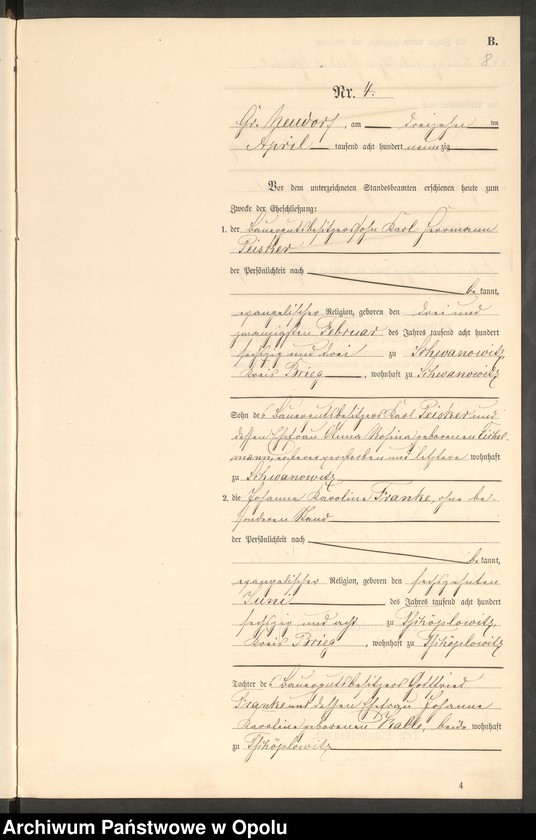 B.
8.
Nr. 4.
Gr. Neudorf, am dreizehn ten
April tausend acht hundert neunzig
Vor dem unterzeichneten Standesbeamten erschienen heute zum
Zwecke der Eheschließung:
1. der Bauergutsbesitzerssohn Karl Herrmann
Peisker
der Persönlichkeit nach
be kannt,
evangelischer Religion, geboren den drei und
zwanzigsten Februar des Jahres tausend acht hundert
sechszig und drei zu Schwanowitz,
Kreis Brieg, wohnhaft zu Schwanowitz
Sohn des Bauergutsbesitzers Karl Peisker und
dessen Ehefrau Anna Rosina geborenen
mann, ersterer verstorben und letztere wohnhaft
zu Schwanowitz
2. die Johanna Karoline Franke, ohne be-
sonderen Stand
der Persönlichkeit nach
be kannt,
evangelischer Religion, geboren den sechszehnten
Juni des Jahres tausend acht hundert
sechszig und acht zu Tschöplowitz,
Kreis Brieg, wohnhaft zu Tschöplowitz
Tochter des Bauergutsbesitzers Gottfried
Franke und dessen Ehefrau Johanna
Karoline geborenen Kalle, beide wohnhaft
zu Tschöplowitz
4
Archiwum Państwowe w Opolu